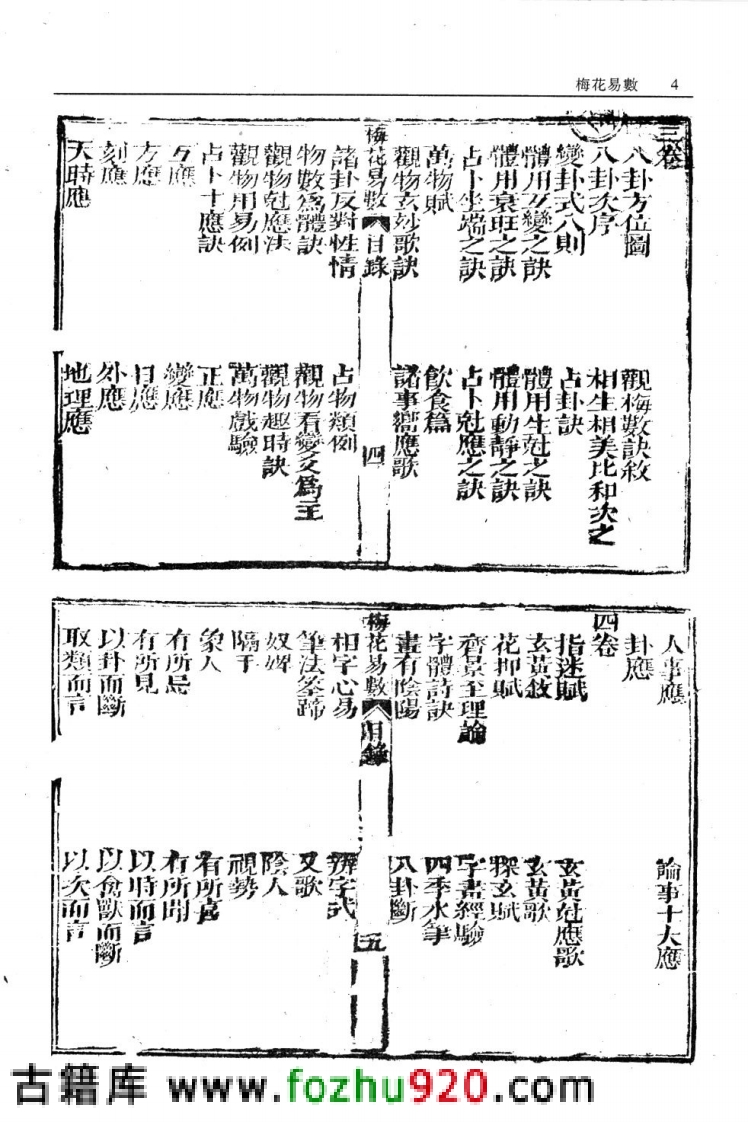 梅花易數 4
三卷
八卦方位圖 觀梅數訣敘
八卦次序 相生相美比和次之
變卦式八則 占卦訣
體用互變之訣 體用生尅之訣
體用衰旺之訣 體用動靜之訣
占卜坐端之訣 占卜尅應之訣
萬物賦 飲食篇
觀物玄妙歌訣 諸事嚮應歌
梅花易數 目錄 四
諸卦反對性情 占物類例
物數爲體訣 觀物看變爻爲主
觀物尅應法 觀物趣時訣
觀物用易例 萬物戲驗
占卜十應訣 正應
互應 變應
方應 日應
刻應 外應
天時應 地理應
人事應 論事十大應
卦應
四卷
指迷賦 玄黃尅應歌
玄黃敘 玄黃歌
花押賦 探玄賦
齊景至理論 字畫經驗
字體詩訣 四季水筆
畫有陰陽 八卦斷
梅花易數 目錄 五
相字心易 辨字式
筆法筌蹄 又歌
奴婢 陰人
隔手 視勢
象人 有所喜
有所居 有所聞
有所見 以時而言
以卦而斷 以禽獸而斷
取類而言 以次而言
古籍库 www.fozhu920.com